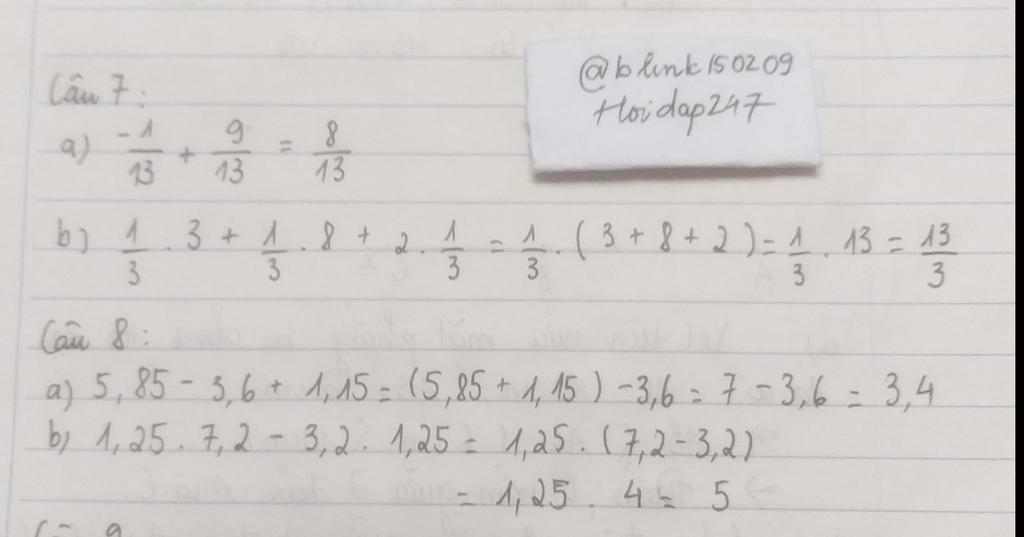 @blink150209
+hoidap247
Câu 7:
a) -1/13 + 9/13 = 8/13
b) 1/3 . 3 + 1/3 . 8 + 2 . 1/3 = 1/3 . (3 + 8 + 2) = 1/3 . 13 = 13/3
Câu 8:
a) 5,85 - 3,6 + 1,15 = (5,85 + 1,15) - 3,6 = 7 - 3,6 = 3,4
b) 1,25 . 7,2 - 3,2 . 1,25 = 1,25 . (7,2 - 3,2)
= 1,25 . 4 = 5